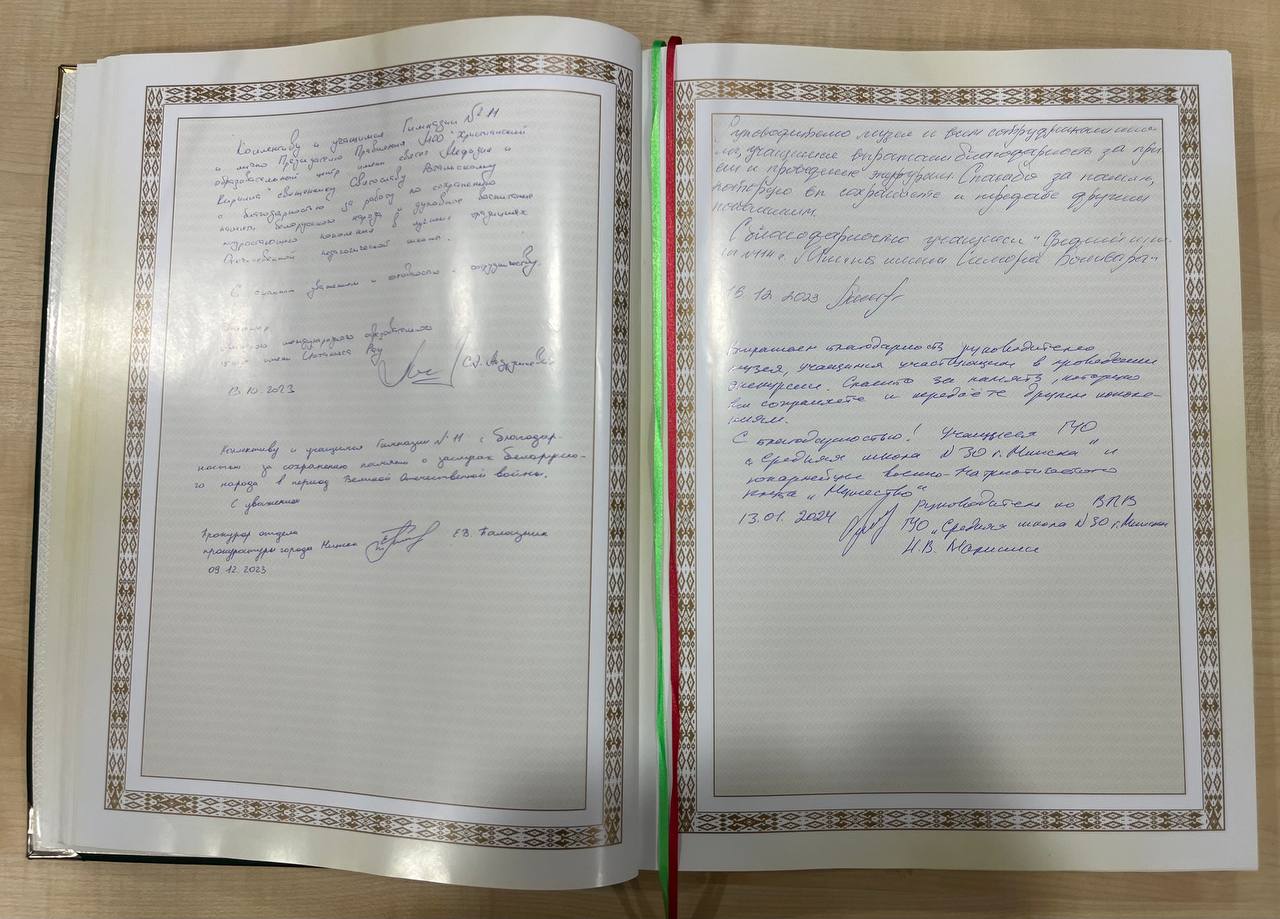 Коллективу и учащимся Гимназии № 11
и лично Председателю Правления МОО "Христианский
образовательный центр имени святых Мефодия и
Кирилла" священнику Святославу Рогальскому
с благодарностью за работу по сохранению
памяти белорусского народа и духовное воспитание
подрастающего поколения в лучших традициях
Отечественной педагогической школы.
С глубоким уважением и готовностью к сотрудничеству.
международного образовательного
имени
13.10.2023
Коллективу и учащимся Гимназии № 11 с благодар-
ностью за сохранение памяти о заслугах белорусско-
го народа в период Великой Отечественной войны.
С уважением
Прокурор отдела
прокуратуры города Минска Е.В.
09.12.2023
Руководителю музея и всем сотрудникам
учащимся выражаем благодарность за при-
ем и проведение экскурсии. Спасибо за память,
которую вы сохраняете и передаете другим
поколениям.
С благодарностью учащиеся "Средней шко-
лы №114 г. Минска имени Симона Боливара"
18.12.2023
Выражаем благодарность руководителю
музея, учащимся участвующим в проведении
экскурсии. Спасибо за память, которую
вы сохраняете и передаёте другим поколе-
ниям.
С благодарностью! Учащиеся ГУО
"Средняя школа №30 г. Минска" и
юнармейцы военно-патриотического
клуба "Мужество"
руководитель по ВПВ
13.01.2024 ГУО "Средняя школа №30 г. Минска
Н.В.